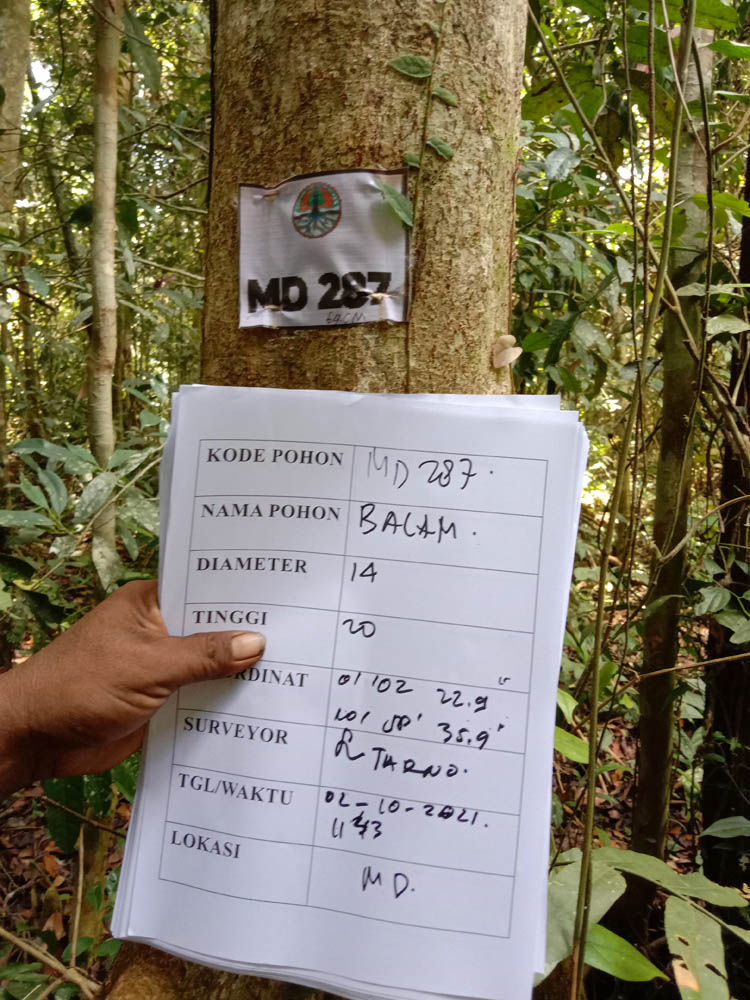 MD 287
64 CM
KODE POHON MD 287.
NAMA POHON BALAM.
DIAMETER 14
TINGGI 20
RDINAT 01 '02 22.9 "
101 58' 35.9"
SURVEYOR TARNO.
TGL/WAKTU 02-10-2021.
11 43
LOKASI MD.